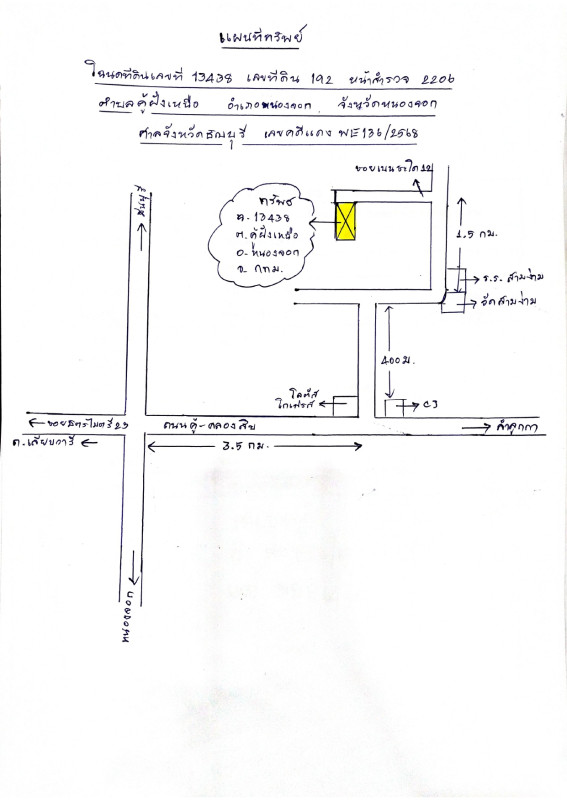 แผนที่ทรัพย์
โฉนดที่ดินเลขที่ 13438 เลขที่ดิน 192 หน้าสำรวจ 2206
ตำบลคู้ฝั่งเหนือ อำเภอหนองจอก จังหวัดหนองจอก
ศาลจังหวัดธัญบุรี เลขคดีแดง ผบE136/2568
มีนบุรี
ทรัพย์
ฉ. 13438
ต. คู้ฝั่งเหนือ
อ. หนองจอก
จ. กทม.
1.5 กม.
ร.ร. สามง่าม
วัดสามง่าม
400 ม.
โลตัส
CJ
ถนนคู้-คลองสิบ
ลำลูกกา
ถ. เลียบวารี
3.5 กม.
หนองจอก